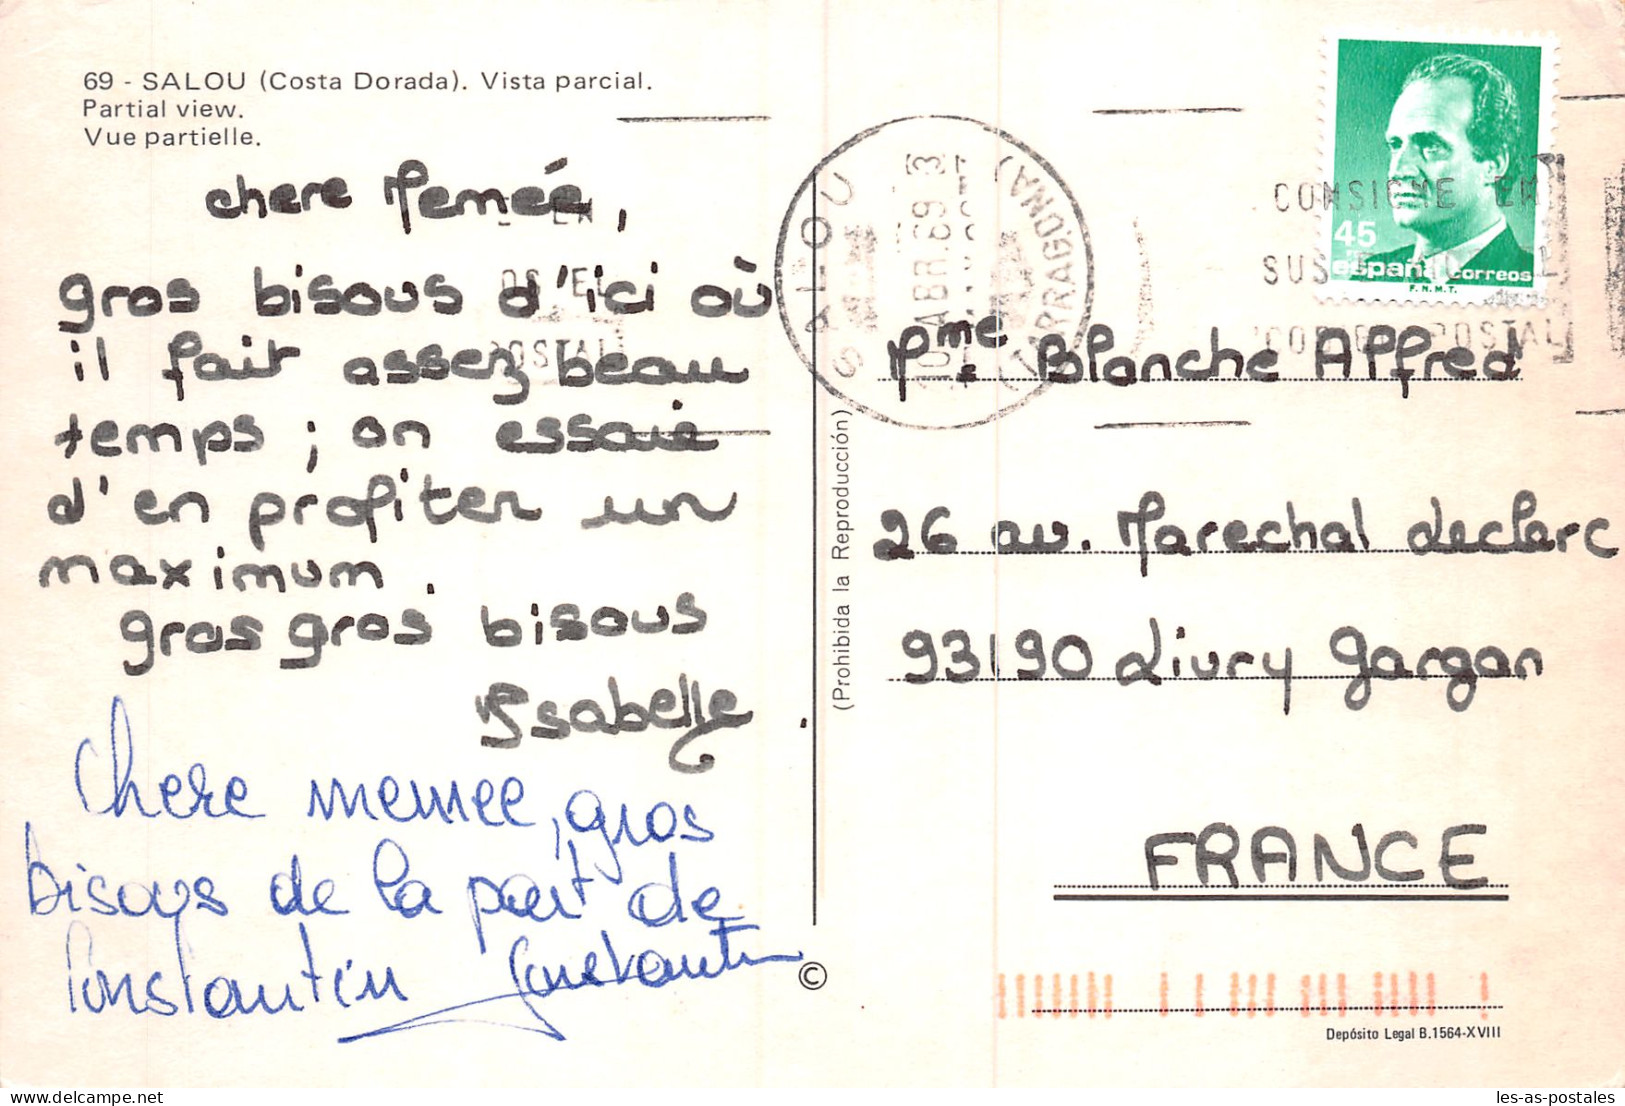 69 - SALOU (Costa Dorada). Vista parcial.
Partial view.
Vue partielle.
chere Memée,
gros bisous d'ici où
il fait assez beau
temps ; on essaie
d'en profiter un
maximum.
gros gros bisous
Ysabelle.
Chere memee, gros
bisous de la part de
Constantin Constantin
(Prohibida la Reproducción)
©
SALOU
(TARRAGONA)
10 ABR. 89
CONSIGNE EN
SUS
POSTAL
45
españa correos
F.N.M.T.
Mme. Blanche Alfred
26 av. Marechal declarc
93190 Livry Gargan
FRANCE
Depósito Legal B.1564-XVIII
les-as-postales